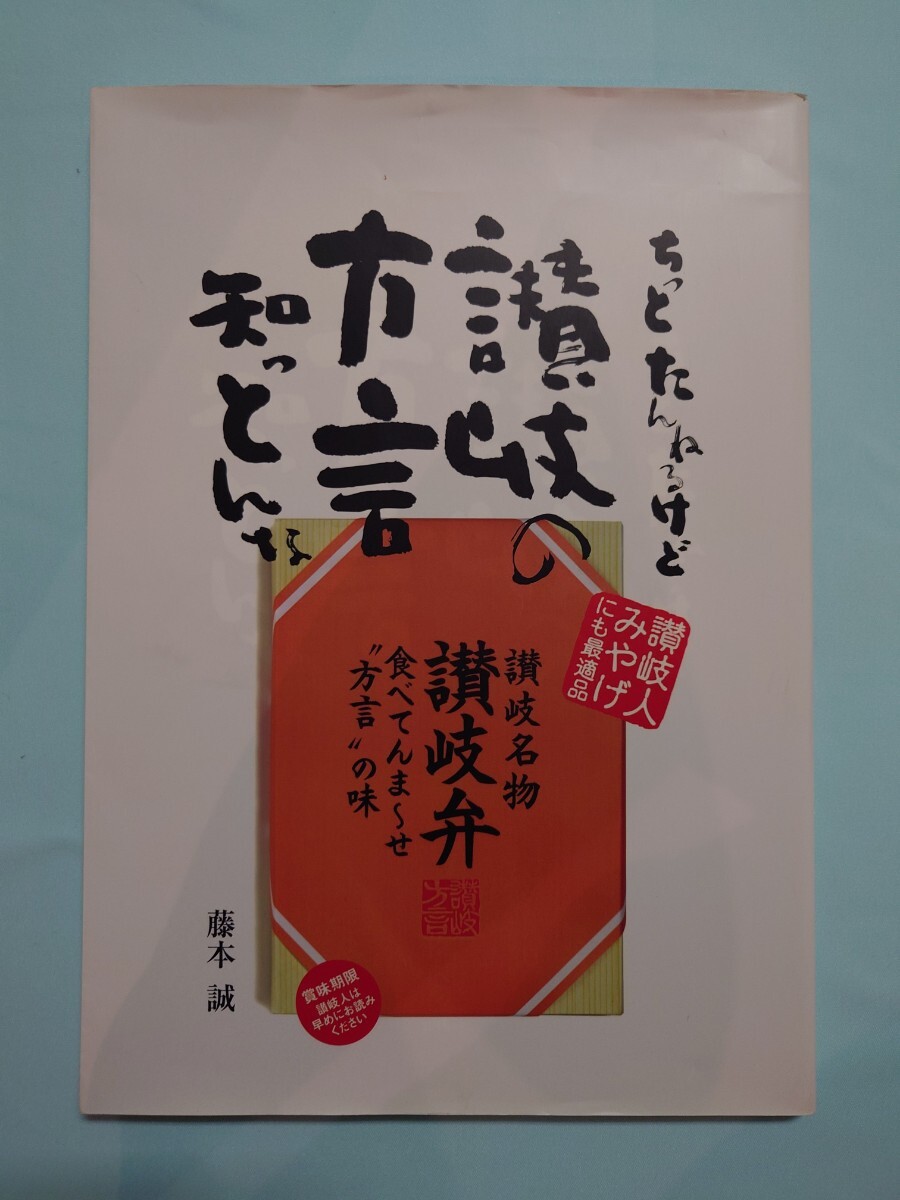 ちっとたんねるけど
讃岐の
方言
知っとんな
讃岐人
みやげ
にも最適品
讃岐名物
讃岐弁
食べてんま〜せ
〝方言〟の味
讃岐
方言
藤本 誠
賞味期限
讃岐人は
早めにお読み
ください